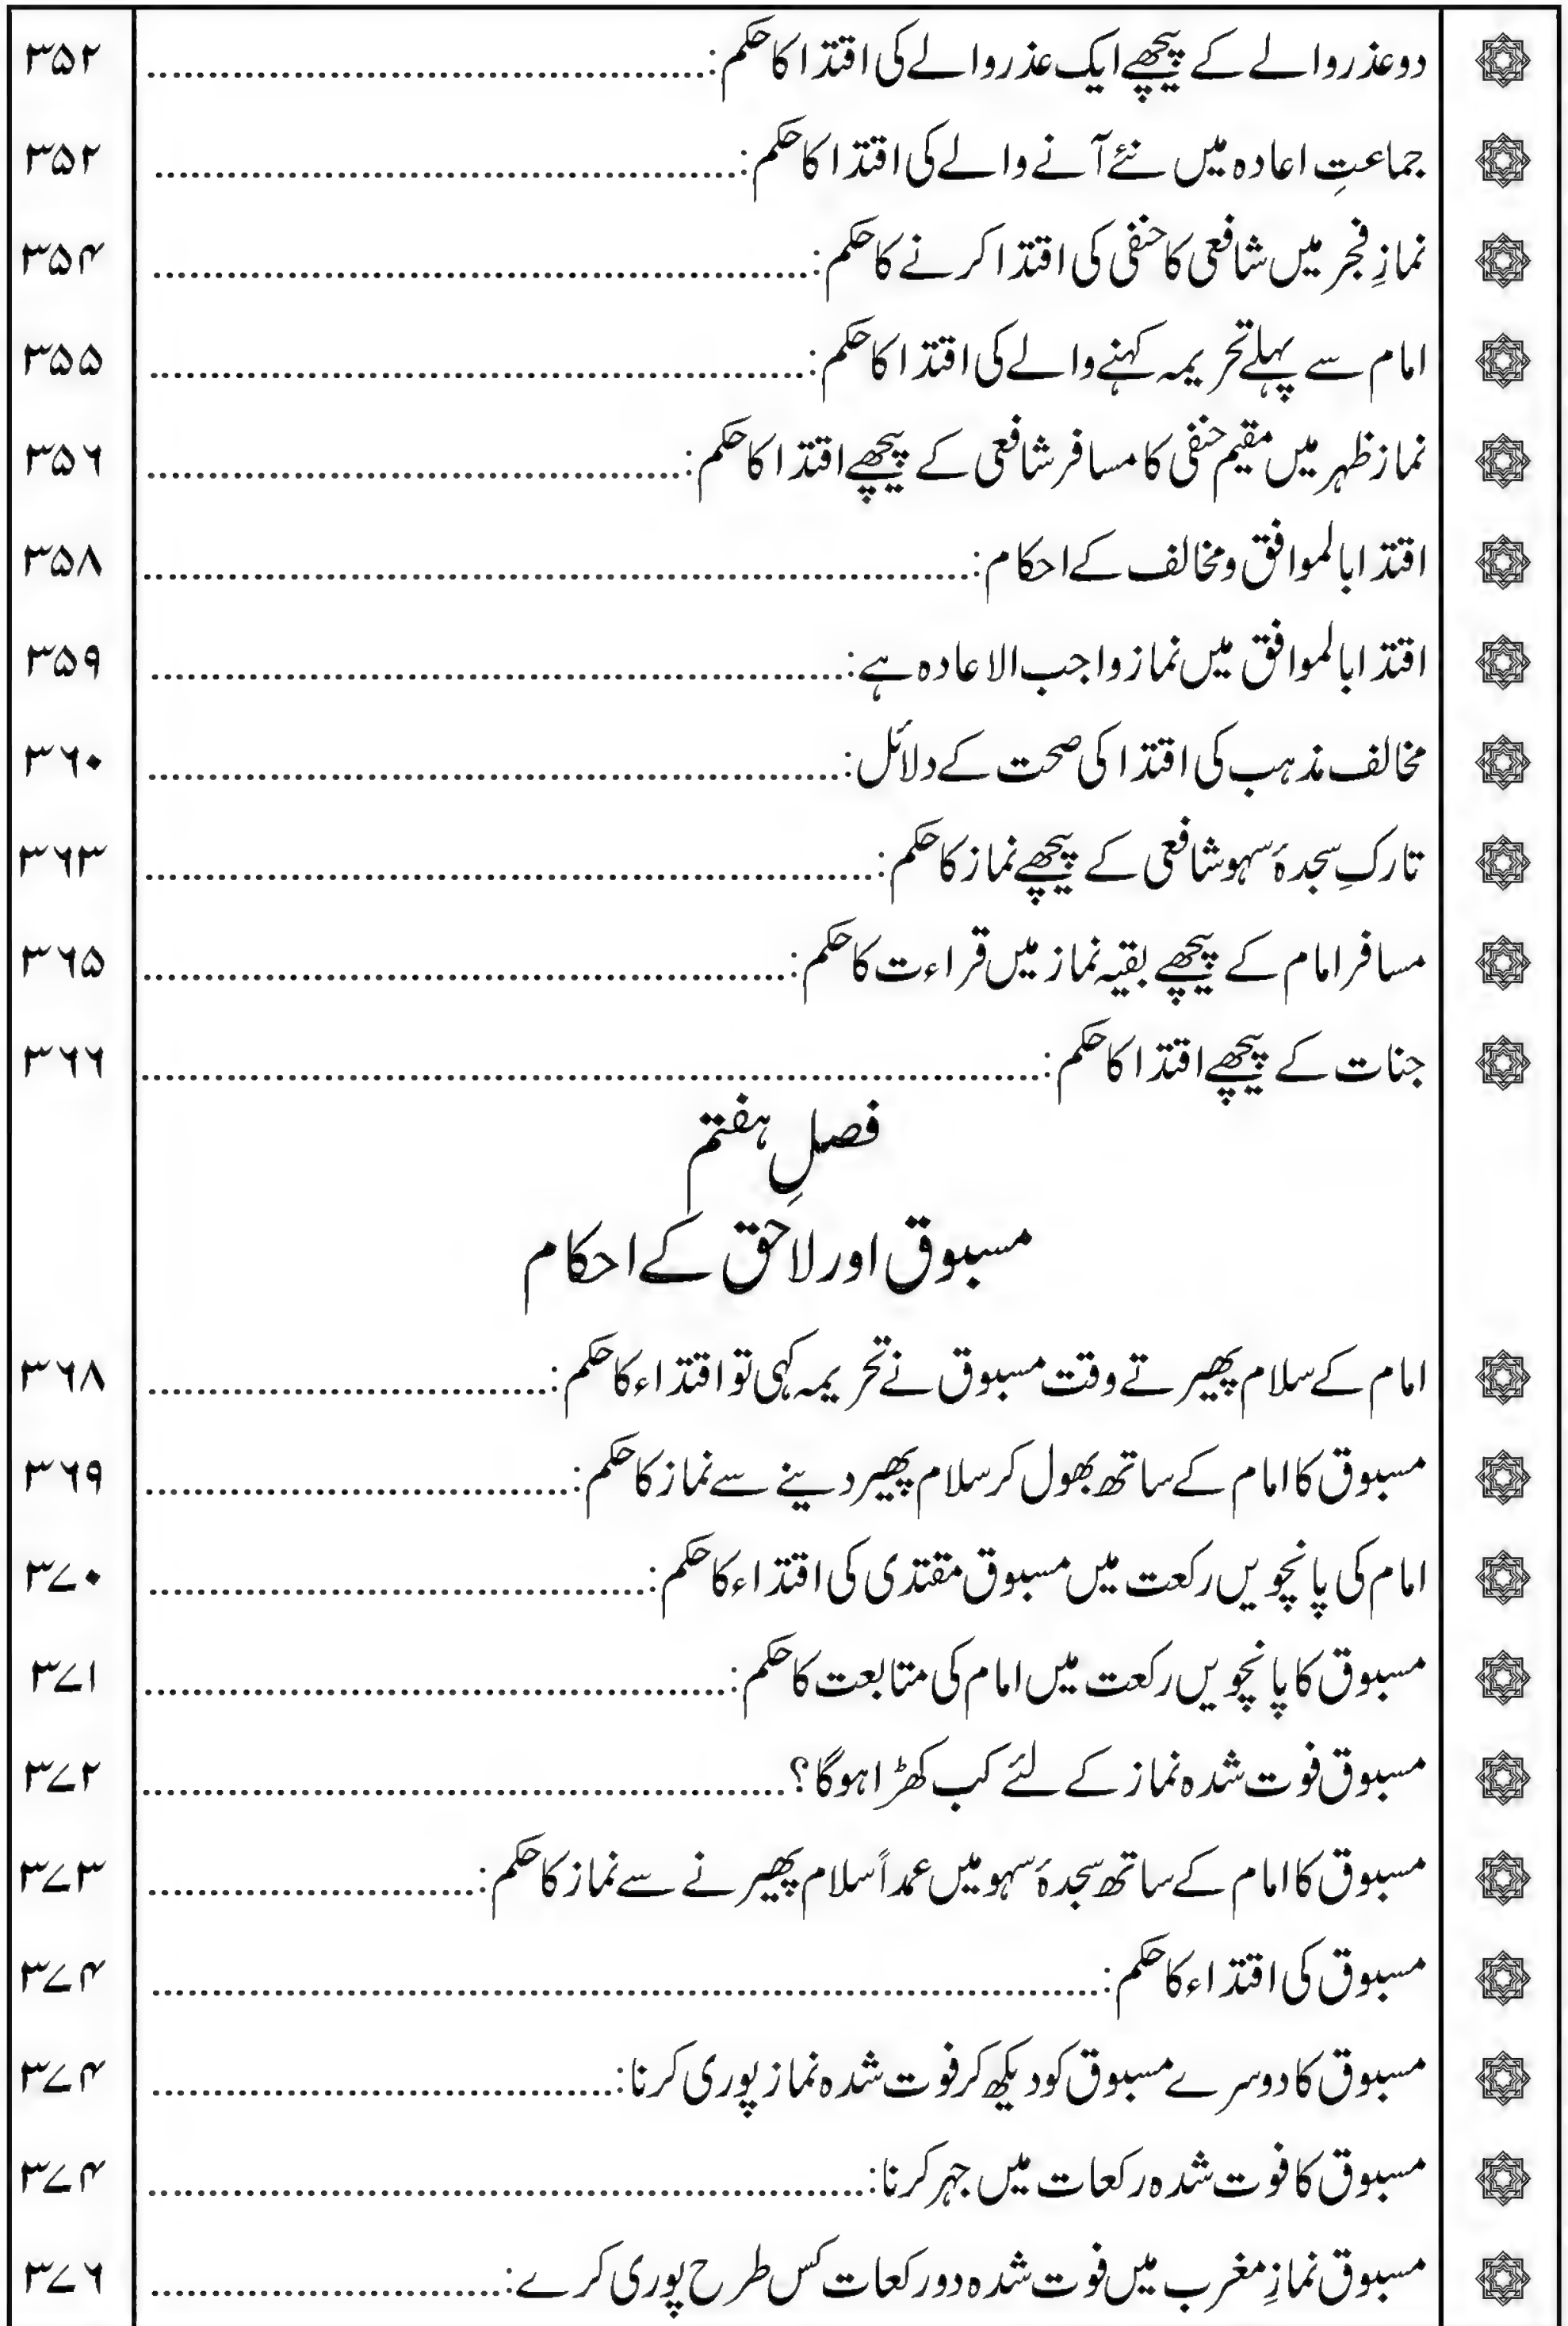 دو عذر والے کے پیچھے ایک عذر والے کی اقتدا کا حکم: ۳۵۲
جماعتِ اعادہ میں نئے آنے والے کی اقتدا کا حکم: ۳۵۲
نمازِ فجر میں شافعی کا حنفی کی اقتدا کرنے کا حکم: ۳۵۴
امام سے پہلے تحریمہ کہنے والے کی اقتدا کا حکم: ۳۵۵
نماز ظہر میں مقیم حنفی کا مسافر شافعی کے پیچھے اقتدا کا حکم: ۳۵۶
اقتدا بالموافق ومخالف کے احکام: ۳۵۸
اقتدا بالموافق میں نماز واجب الاعادہ ہے: ۳۵۹
مخالف مذہب کی اقتدا کی صحت کے دلائل: ۳۶۰
تارکِ سجدۂ سہو شافعی کے پیچھے نماز کا حکم: ۳۶۳
مسافر امام کے پیچھے بقیہ نماز میں قراءت کا حکم: ۳۶۵
جنات کے پیچھے اقتدا کا حکم: ۳۶۶
فصلِ ہفتم
مسبوق اور لاحق کے احکام
امام کے سلام پھیرتے وقت مسبوق نے تحریمہ کہی تو اقتداء کا حکم: ۳۶۸
مسبوق کا امام کے ساتھ بھول کر سلام پھیر دینے سے نماز کا حکم: ۳۶۹
امام کی پانچویں رکعت میں مسبوق مقتدی کی اقتداء کا حکم: ۳۷۰
مسبوق کا پانچویں رکعت میں امام کی متابعت کا حکم: ۳۷۱
مسبوق فوت شدہ نماز کے لئے کب کھڑا ہوگا؟ ۳۷۲
مسبوق کا امام کے ساتھ سجدۂ سہو میں عمداً سلام پھیرنے سے نماز کا حکم: ۳۷۳
مسبوق کی اقتداء کا حکم: ۳۷۴
مسبوق کا دوسرے مسبوق کو دیکھ کر فوت شدہ نماز پوری کرنا: ۳۷۴
مسبوق کا فوت شدہ رکعات میں جہر کرنا: ۳۷۴
مسبوق نمازِ مغرب میں فوت شدہ دو رکعات کس طرح پوری کرے: ۳۷۶